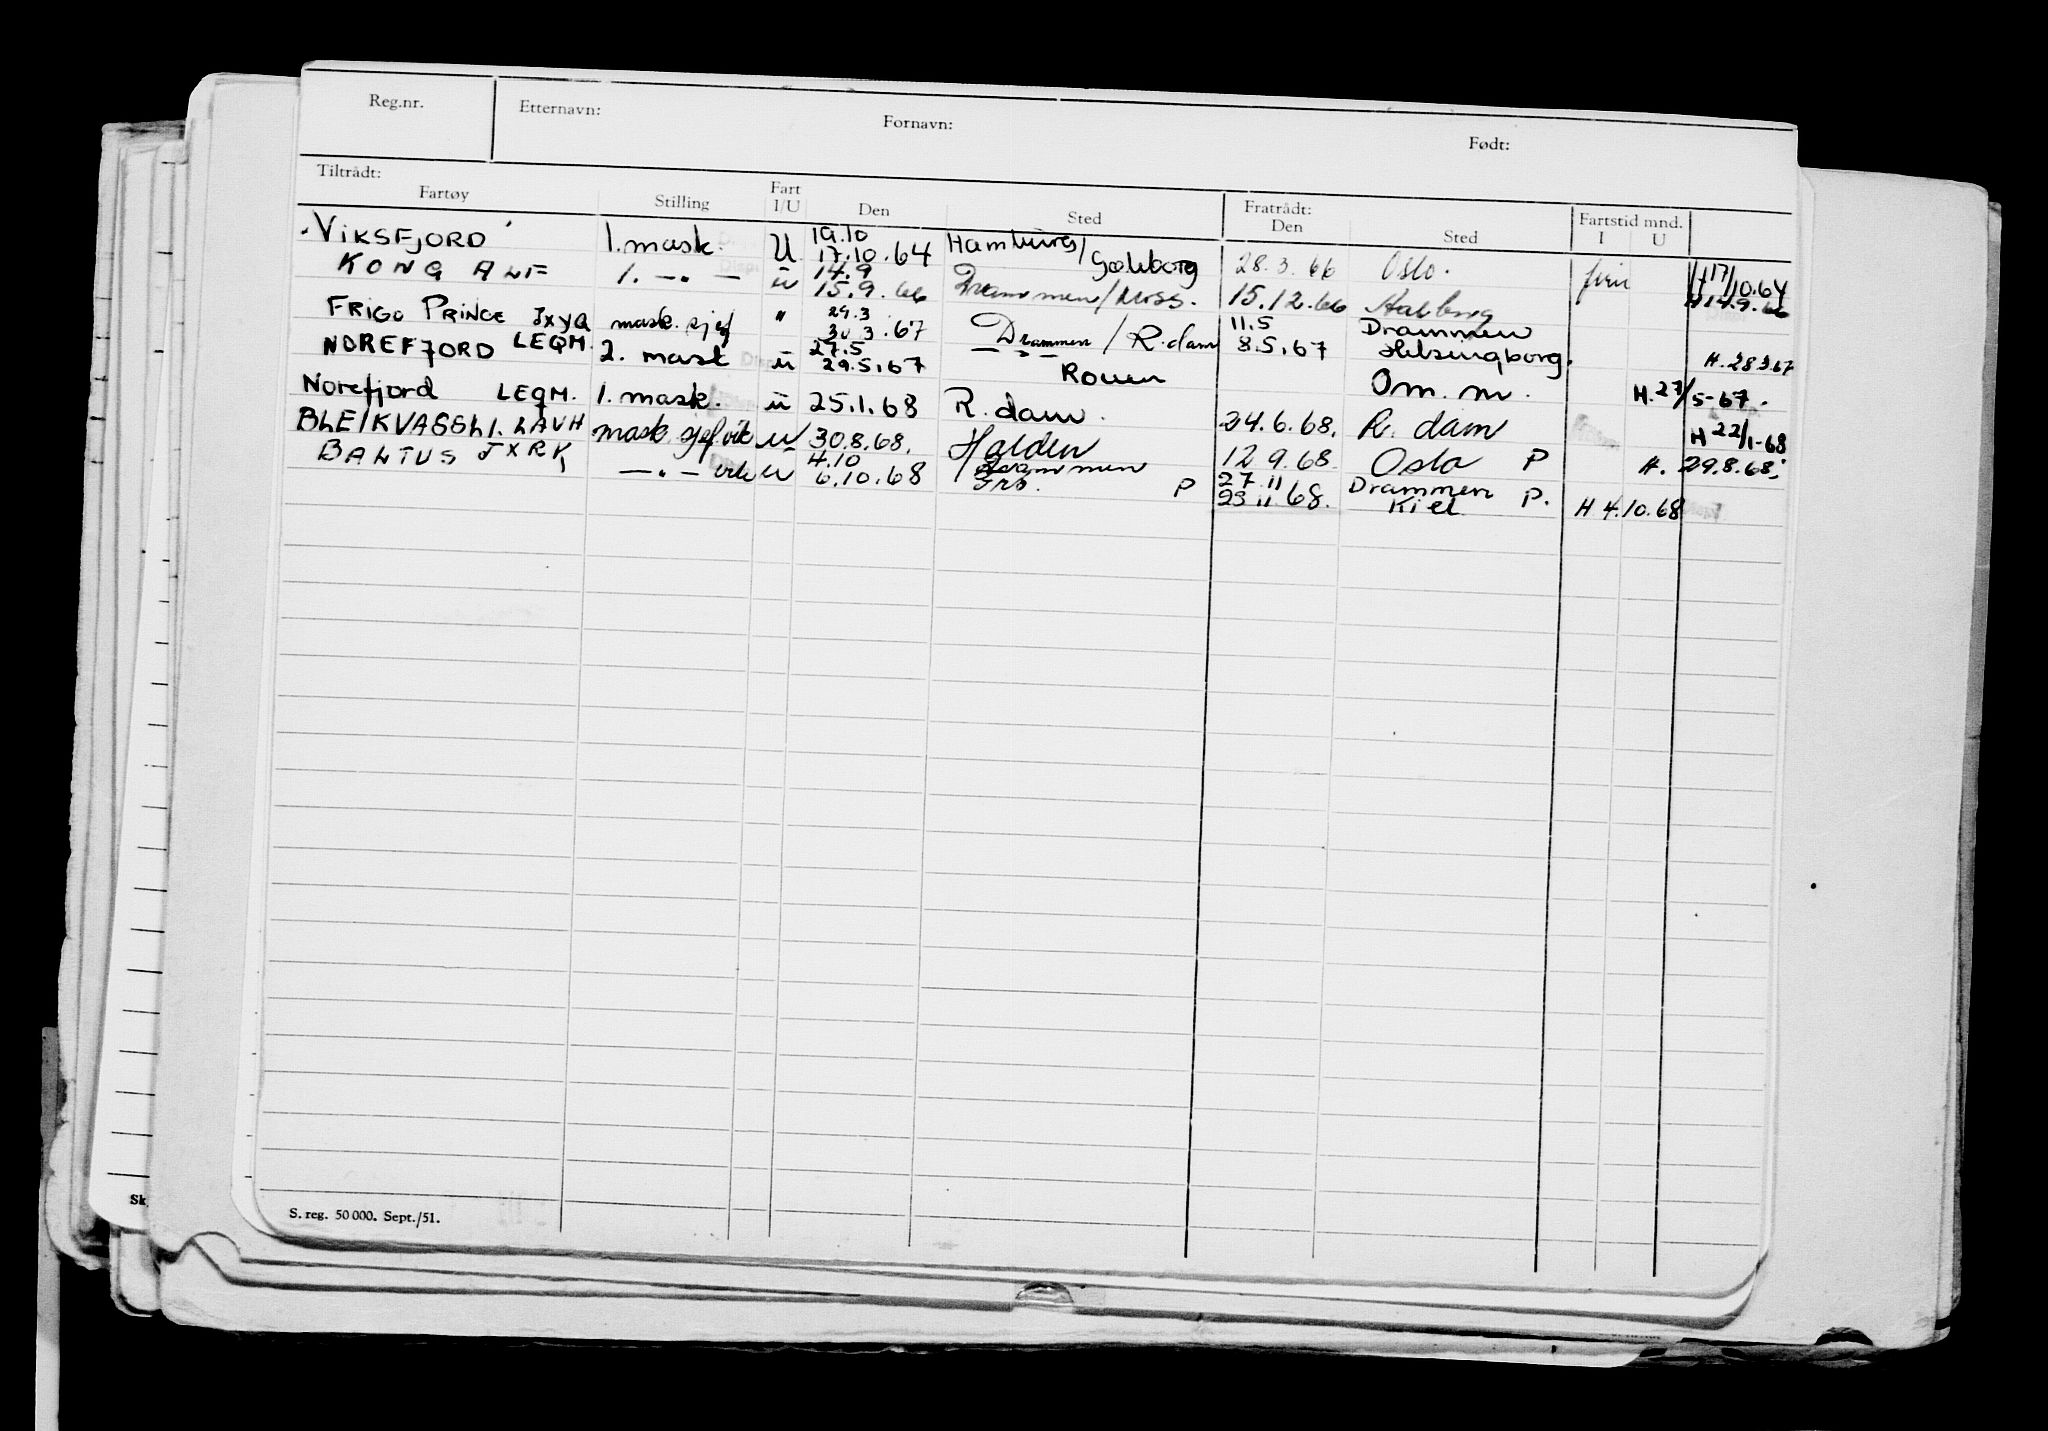 Reg.nr. Etternavn: Fornavn: Født:
Tiltrådt: Fratrådt: Fartstid mnd.
Fartøy Stilling Fart I/U Den Sted Den Sted I U
VIKSFJORD 1. mask. U 19.10 17.10.64 Hamburg/Gøteborg 28.3.66 Oslo. H 17/10.64
KONG ALF 1. -"- u 14.9 15.9.66 Drammen/Moss. 15.12.66 Aalborg H 14.9.66
FRIGO PRINCE JXYQ mask. sjef " 29.3 30.3.67 Drammen / R.dam 11.5 8.5.67 Drammen Helsingborg. H. 28.3.67
NOREFJORD LEQM. 2. mask u 27.5 29.5.67 -"- Rouen Om. m. H. 27/5-67.
Norefjord LEQM. 1. mask. u 25.1.68 R. dam. 24.6.68. R. dam H 22/1-68
BLEIKVASSLI. LAVH mask. sjef. vik u 30.8.68. Halden 12.9.68. Oslo P H. 29.8.68.
BALTUS JXRK -"- u 4.10 6.10.68 Drammen P 27.11 29.11.68. Drammen Kiel P. H 4.10.68
S. reg. 50 000. Sept./51.
Sk